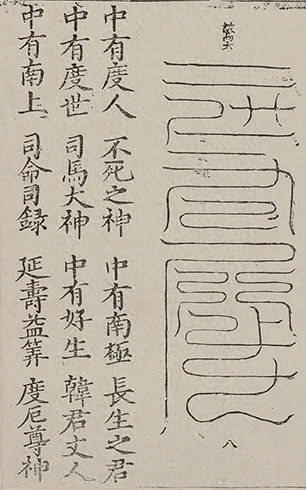 八
中有度人 不死之神 中有南極 長生之君
中有度世 司馬大神 中有好生 韓君丈人
中有南上 司命司録 延壽益筭 度厄尊神